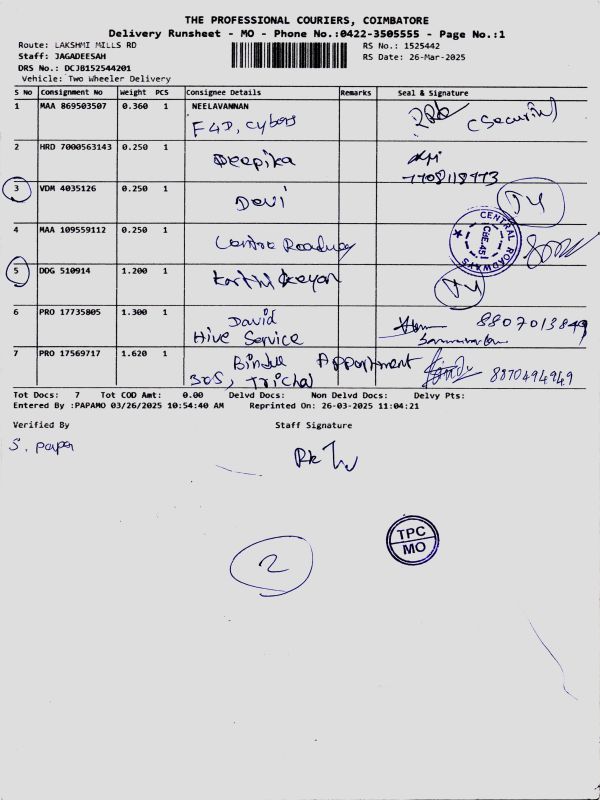 THE PROFESSIONAL COURIERS, COIMBATORE
Delivery Runsheet - MO - Phone No.:0422-3505555 - Page No.:1
Route: LAKSHMI MILLS RD
RS No.: 1525442
Staff: JAGADEESAH
RS Date: 26-Mar-2025
DRS No.: DCJB152544201
Vehicle: Two Wheeler Delivery
S No Consignment No Weight PCS Consignee Details Remarks Seal & Signature
1 MAA 869503507 0.360 1 NEELAVANNAN
F4D, Cybers
(Security)
2 HRD 7000563143 0.250 1 Deepika
7708118773
3 VDM 4035126 0.250 1 Devi
4 MAA 109559112 0.250 1 Centre Roadway
CENTRAL ROADWAYS
CBE.451
5 DDG 510914 1.200 1 Karthikeyan
6 PRO 17735805 1.300 1 David
Hive Service
8807013849
7 PRO 17569717 1.620 1 Bindu Appartment
303, Trichy
8870494949
Tot Docs: 7 Tot COD Amt: 0.00 Delvd Docs: Non Delvd Docs: Delvy Pts:
Entered By :PAPAMO 03/26/2025 10:54:40 AM Reprinted On: 26-03-2025 11:04:21
Verified By Staff Signature
S. papa
TPC
MO
2